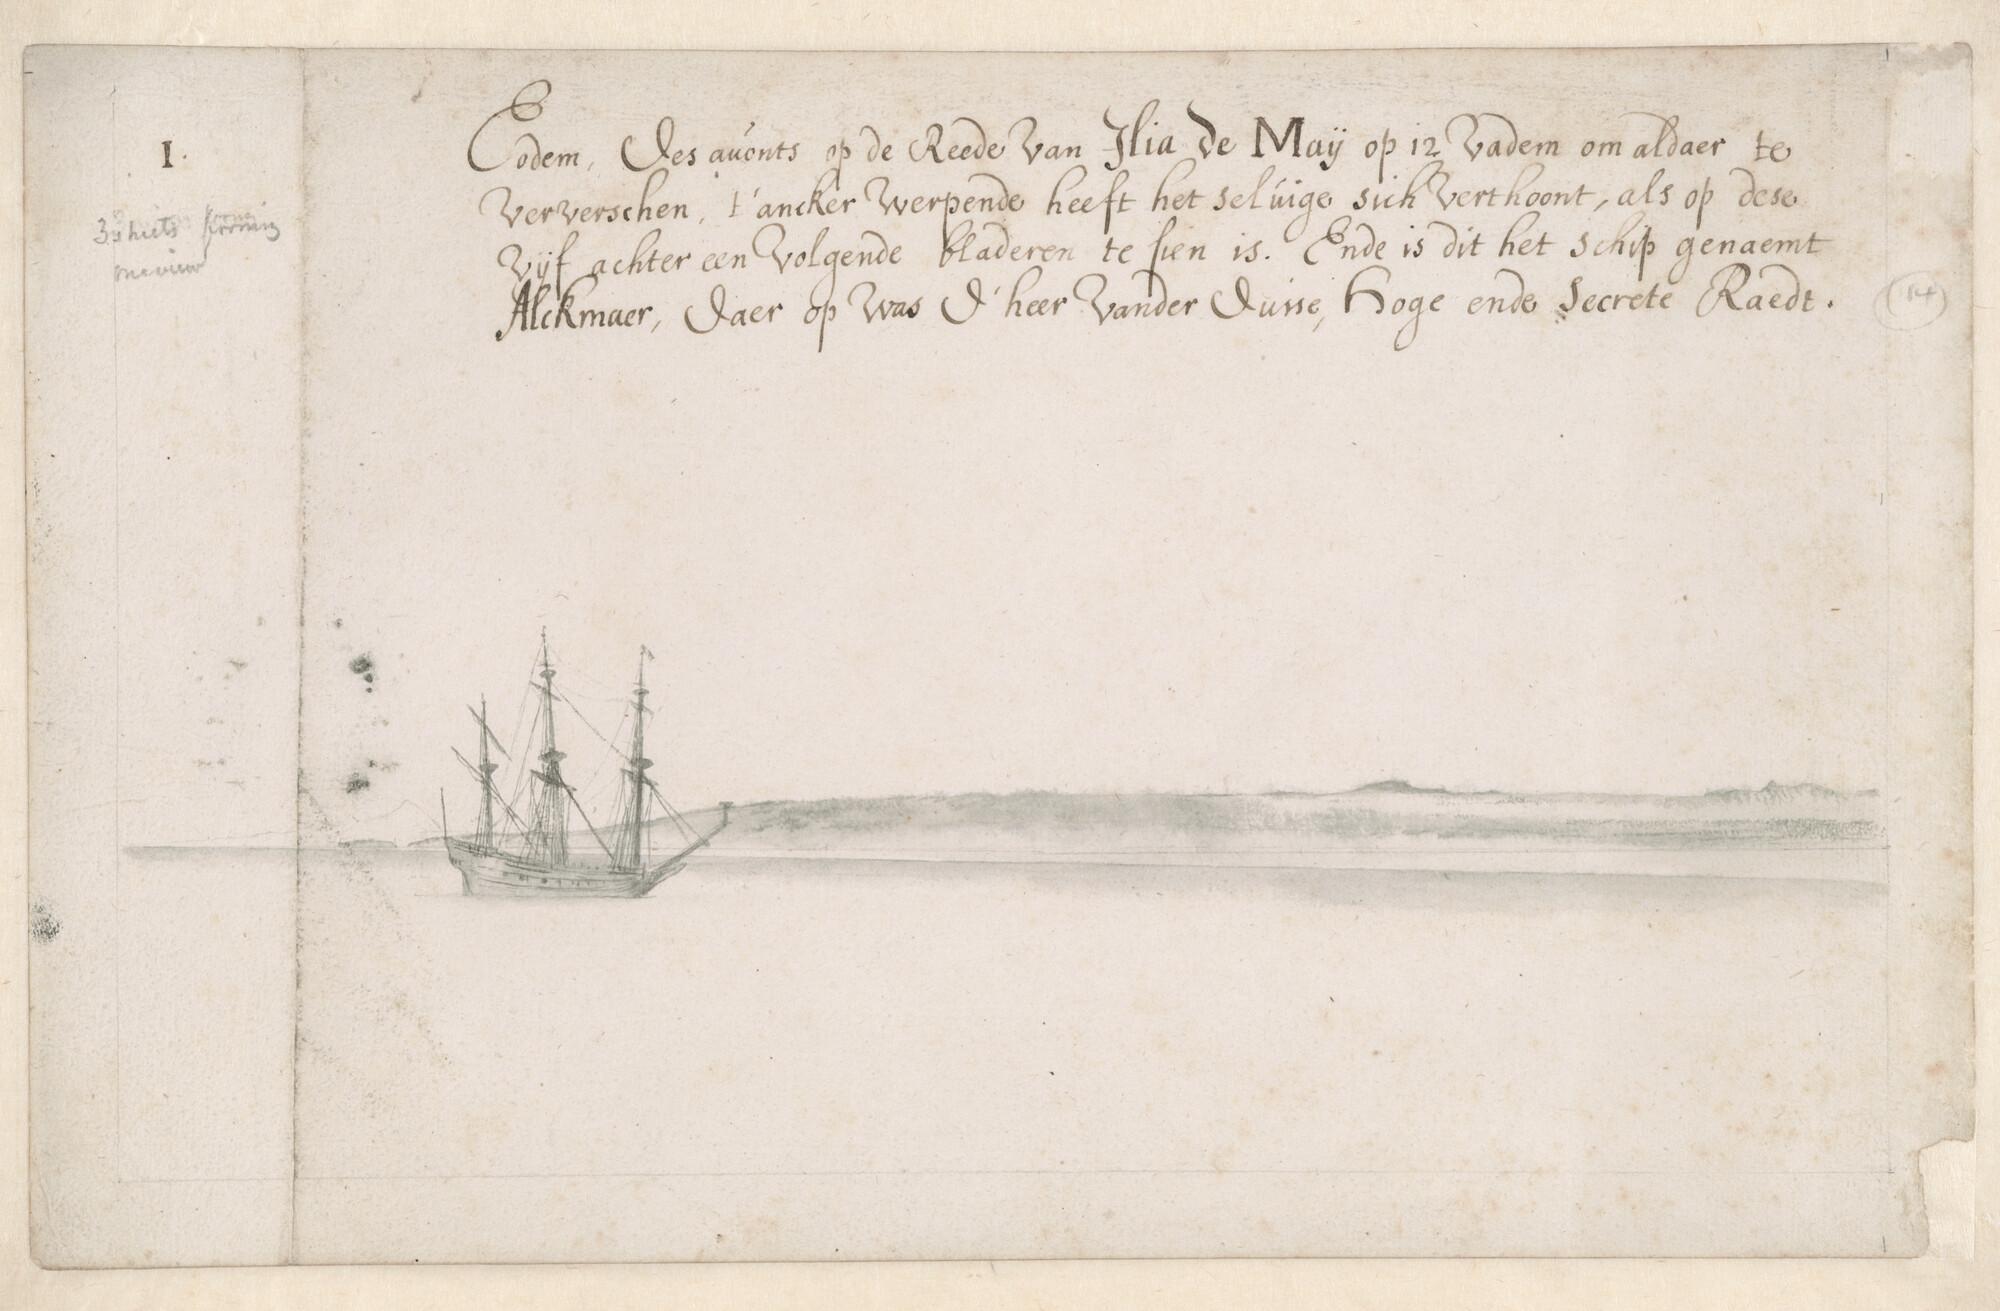 I.
Eodem, des auonts op de Reede van Ilia de Maÿ op 12 vadem om aldaer te
ververschen, t'ancker werpende heeft het seluige sich verthoont, als op dese
vijf achter een volgende bladeren te sien is. Ende is dit het schip genaemt
Alckmaer, daer op was d'heer vander Duise, Hoge ende secrete Raedt.